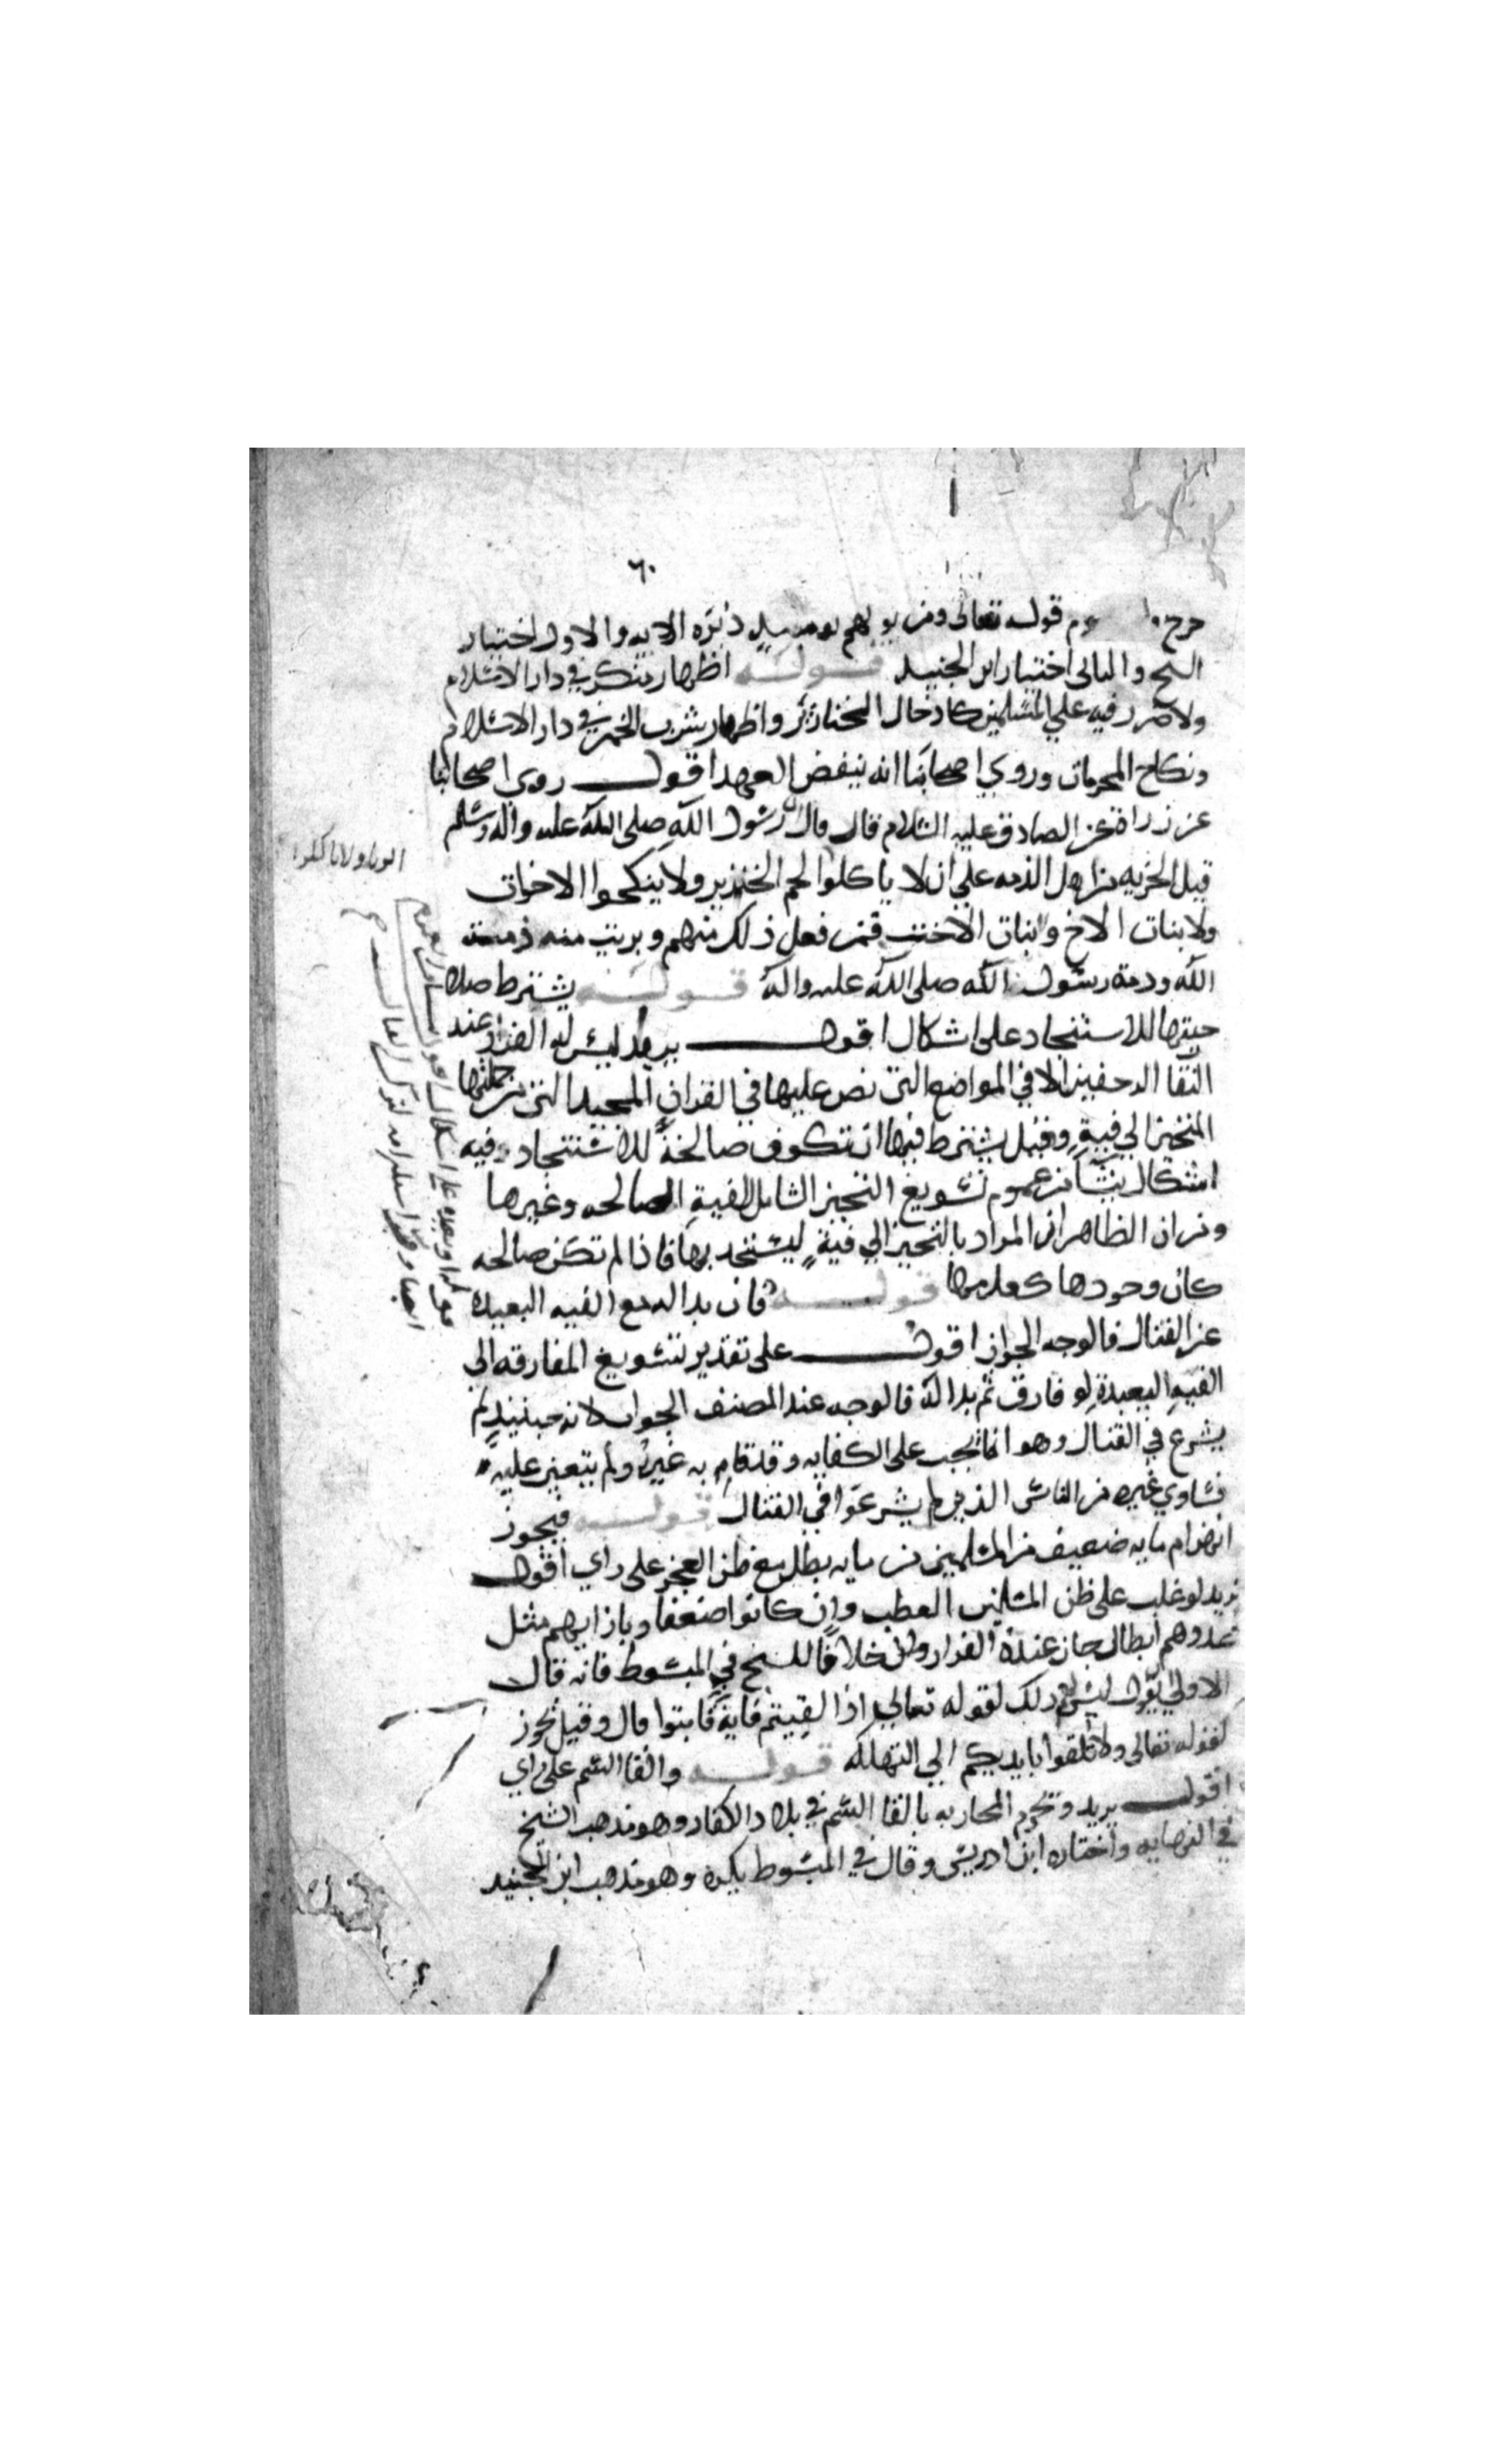 ٦٠
خرج وم قوله تعالى ومن يولهم يومئذ دبره الايه والاول اختيار
الشيخ والثاني اختيار ابن الجنيد قوله اظهار منكر في دار الاسلام
ولا ضرر فيه على المسلمين كادخال الخنازير واظهار شرب الخمر في دار الاسلام
ونكاح المحرمات وروي اصحابنا انه ينقض العهد اقول روى اصحابنا
عن زرارة عن الصادق عليه السلام قال قال رسول الله صلى الله عليه واله وسلم
قبل الجزيه من اهل الذمه على ان لا ياكلوا لحم الخنزير ولا ينكحوا الاخوات
ولا بنات الاخ وبنات الاخت فمن فعل ذلك منهم وبريت منه ذمة
الله وذمة رسول الله صلى الله عليه واله قوله يشترط صلا
حيتها للاستنجاد على اشكال اقول يريد ليس له الفرار عند
التقا الزحفين الا في المواضع التي نص عليها في القران المجيد التي من جملتها
المتحيز الى فية وقيل يشترط فيها ان تكون صالحة للاستنجاد وفيه
اشكال ينشا من عموم تسويغ التحيز الشامل للفية الصالحه وغيرها
ومن ان الظاهر ان المراد بالتحيز الى فية ليستنجد بها فاذا لم تكن صالحه
كان وجودها كعدمها قوله فان بدا له مع الفيه البعيده
عن القتال فالوجه الجواز اقول على تقدير تسويغ المفارقه الى
الفيه البعيدة لو فارق ثم بدا له فالوجه عند المصنف الجواز لانه حينيذ لم
يشرع في القتال وهو انما يجب على الكفايه وقد قام به غيره ولم يتعين عليه
فساوي غيره من الناس الذين لم يشرعوا في القتال قوله فيجوز
انهزام مايه ضعيف من المسلمين من مايه بطل مع ظن العجز على راي اقول
يريد لو غلب على ظن المسلمين العطب وان كانوا ضعفا وبازايهم مثل
عددهم ابطال جاز عنده الفرار خلافا للشيخ في المبسوط فانه قال
الاولى نقول ليس له ذلك لقوله تعالى اذا لقيتم فاية فاثبتوا قال وقيل يجوز
لقوله تعالى ولا تلقوا بايديكم الى التهلكه قوله والقا السم على راي
اقول يريد وتحرم المحاربه بالقا السم في بلاد الكفار وهو مذهب الشيخ
في النهايه واختاره ابن ادريس وقال في المبسوط يكره وهو مذهب ابن الجنيد
الربا ولا ياكلوا